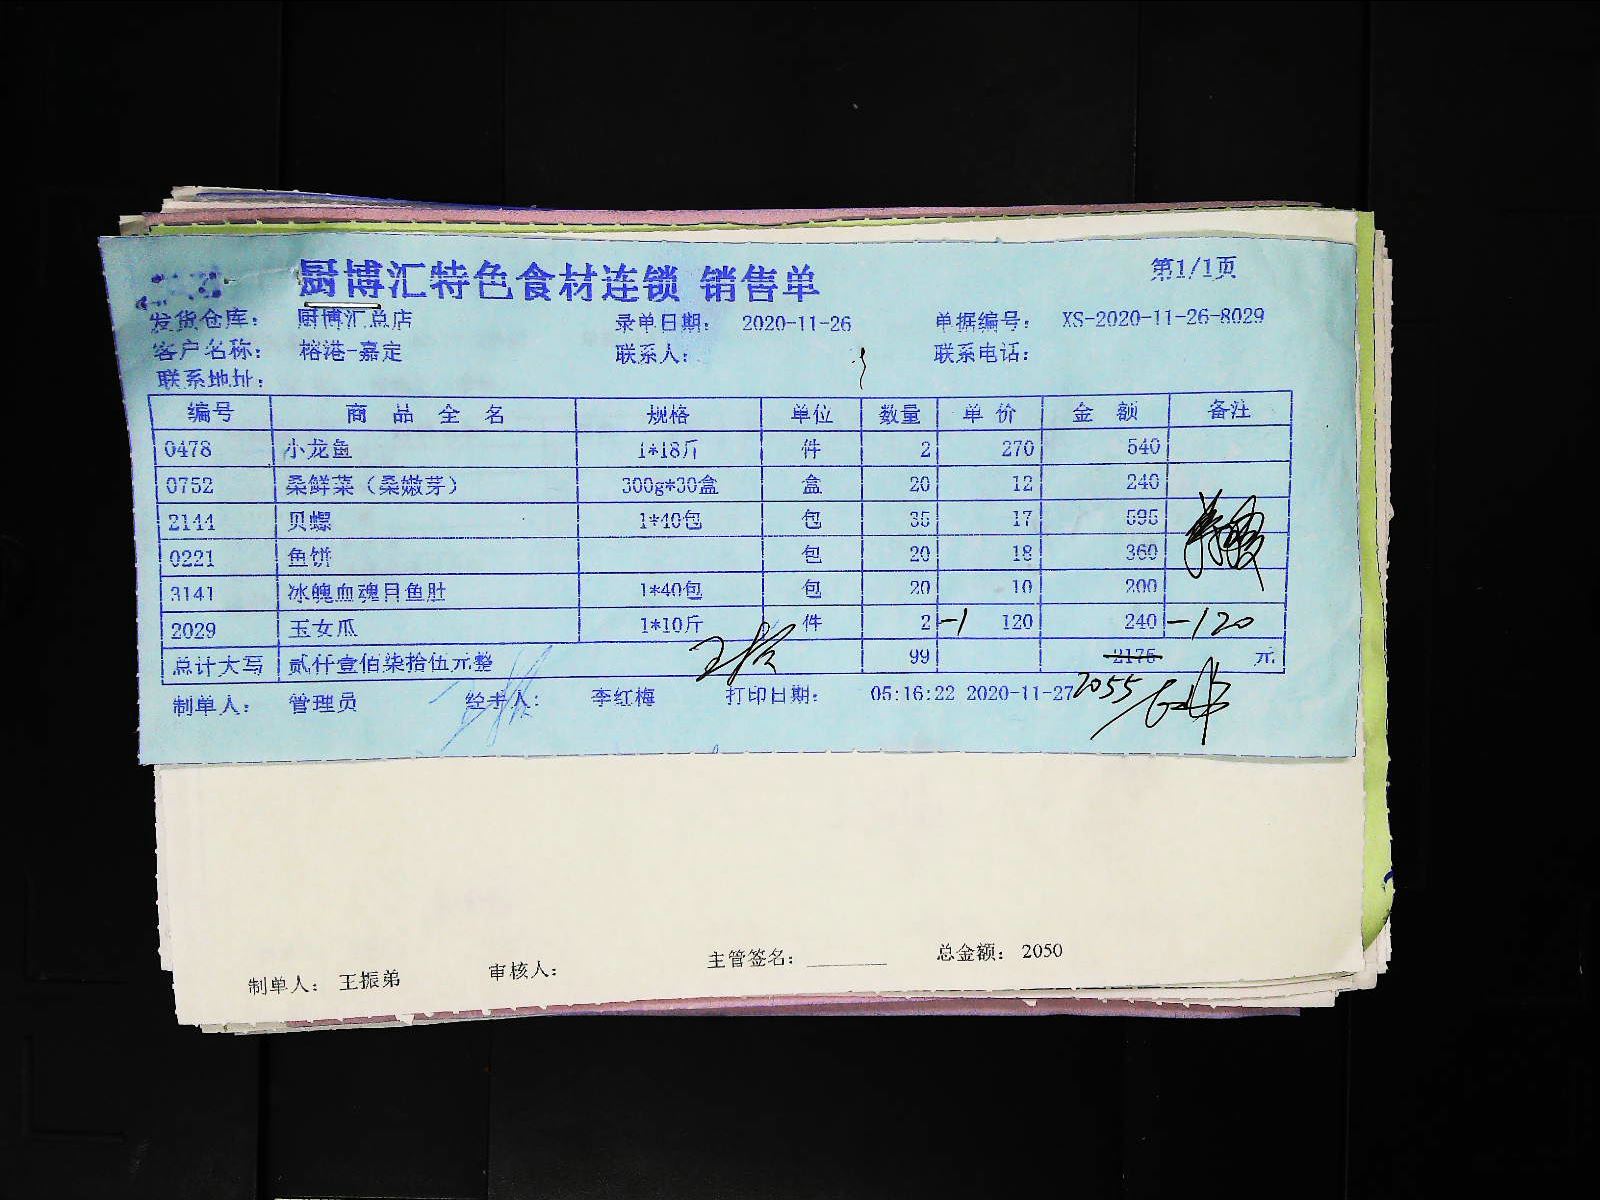 厨博汇特色食材连锁 销售单 第1/1页
发货仓库： 厨博汇总店 录单日期： 2020-11-26 单据编号： XS-2020-11-26-8029
客户名称： 榕港-嘉定 联系人： 联系电话：
联系地址：
编号 商 品 全 名 规格 单位 数量 单 价 金 额 备注
0478 小龙鱼 1*18斤 件 2 270 540
0752 桑鲜菜（桑嫩芽） 300g*30盒 盒 20 12 240
2144 贝螺 1*40包 包 35 17 595
0221 鱼饼 包 20 18 360
3141 冰魄血魂目鱼肚 1*40包 包 20 10 200
2029 玉女瓜 1*10斤 件 2 -1 120 240 -120
总计大写 贰仟壹佰柒拾伍元整 99 2175 元
制单人： 管理员 经手人： 李红梅 打印日期： 05:16:22 2020-11-27 2055
制单人： 王振弟 审核人： 主管签名： 总金额： 2050